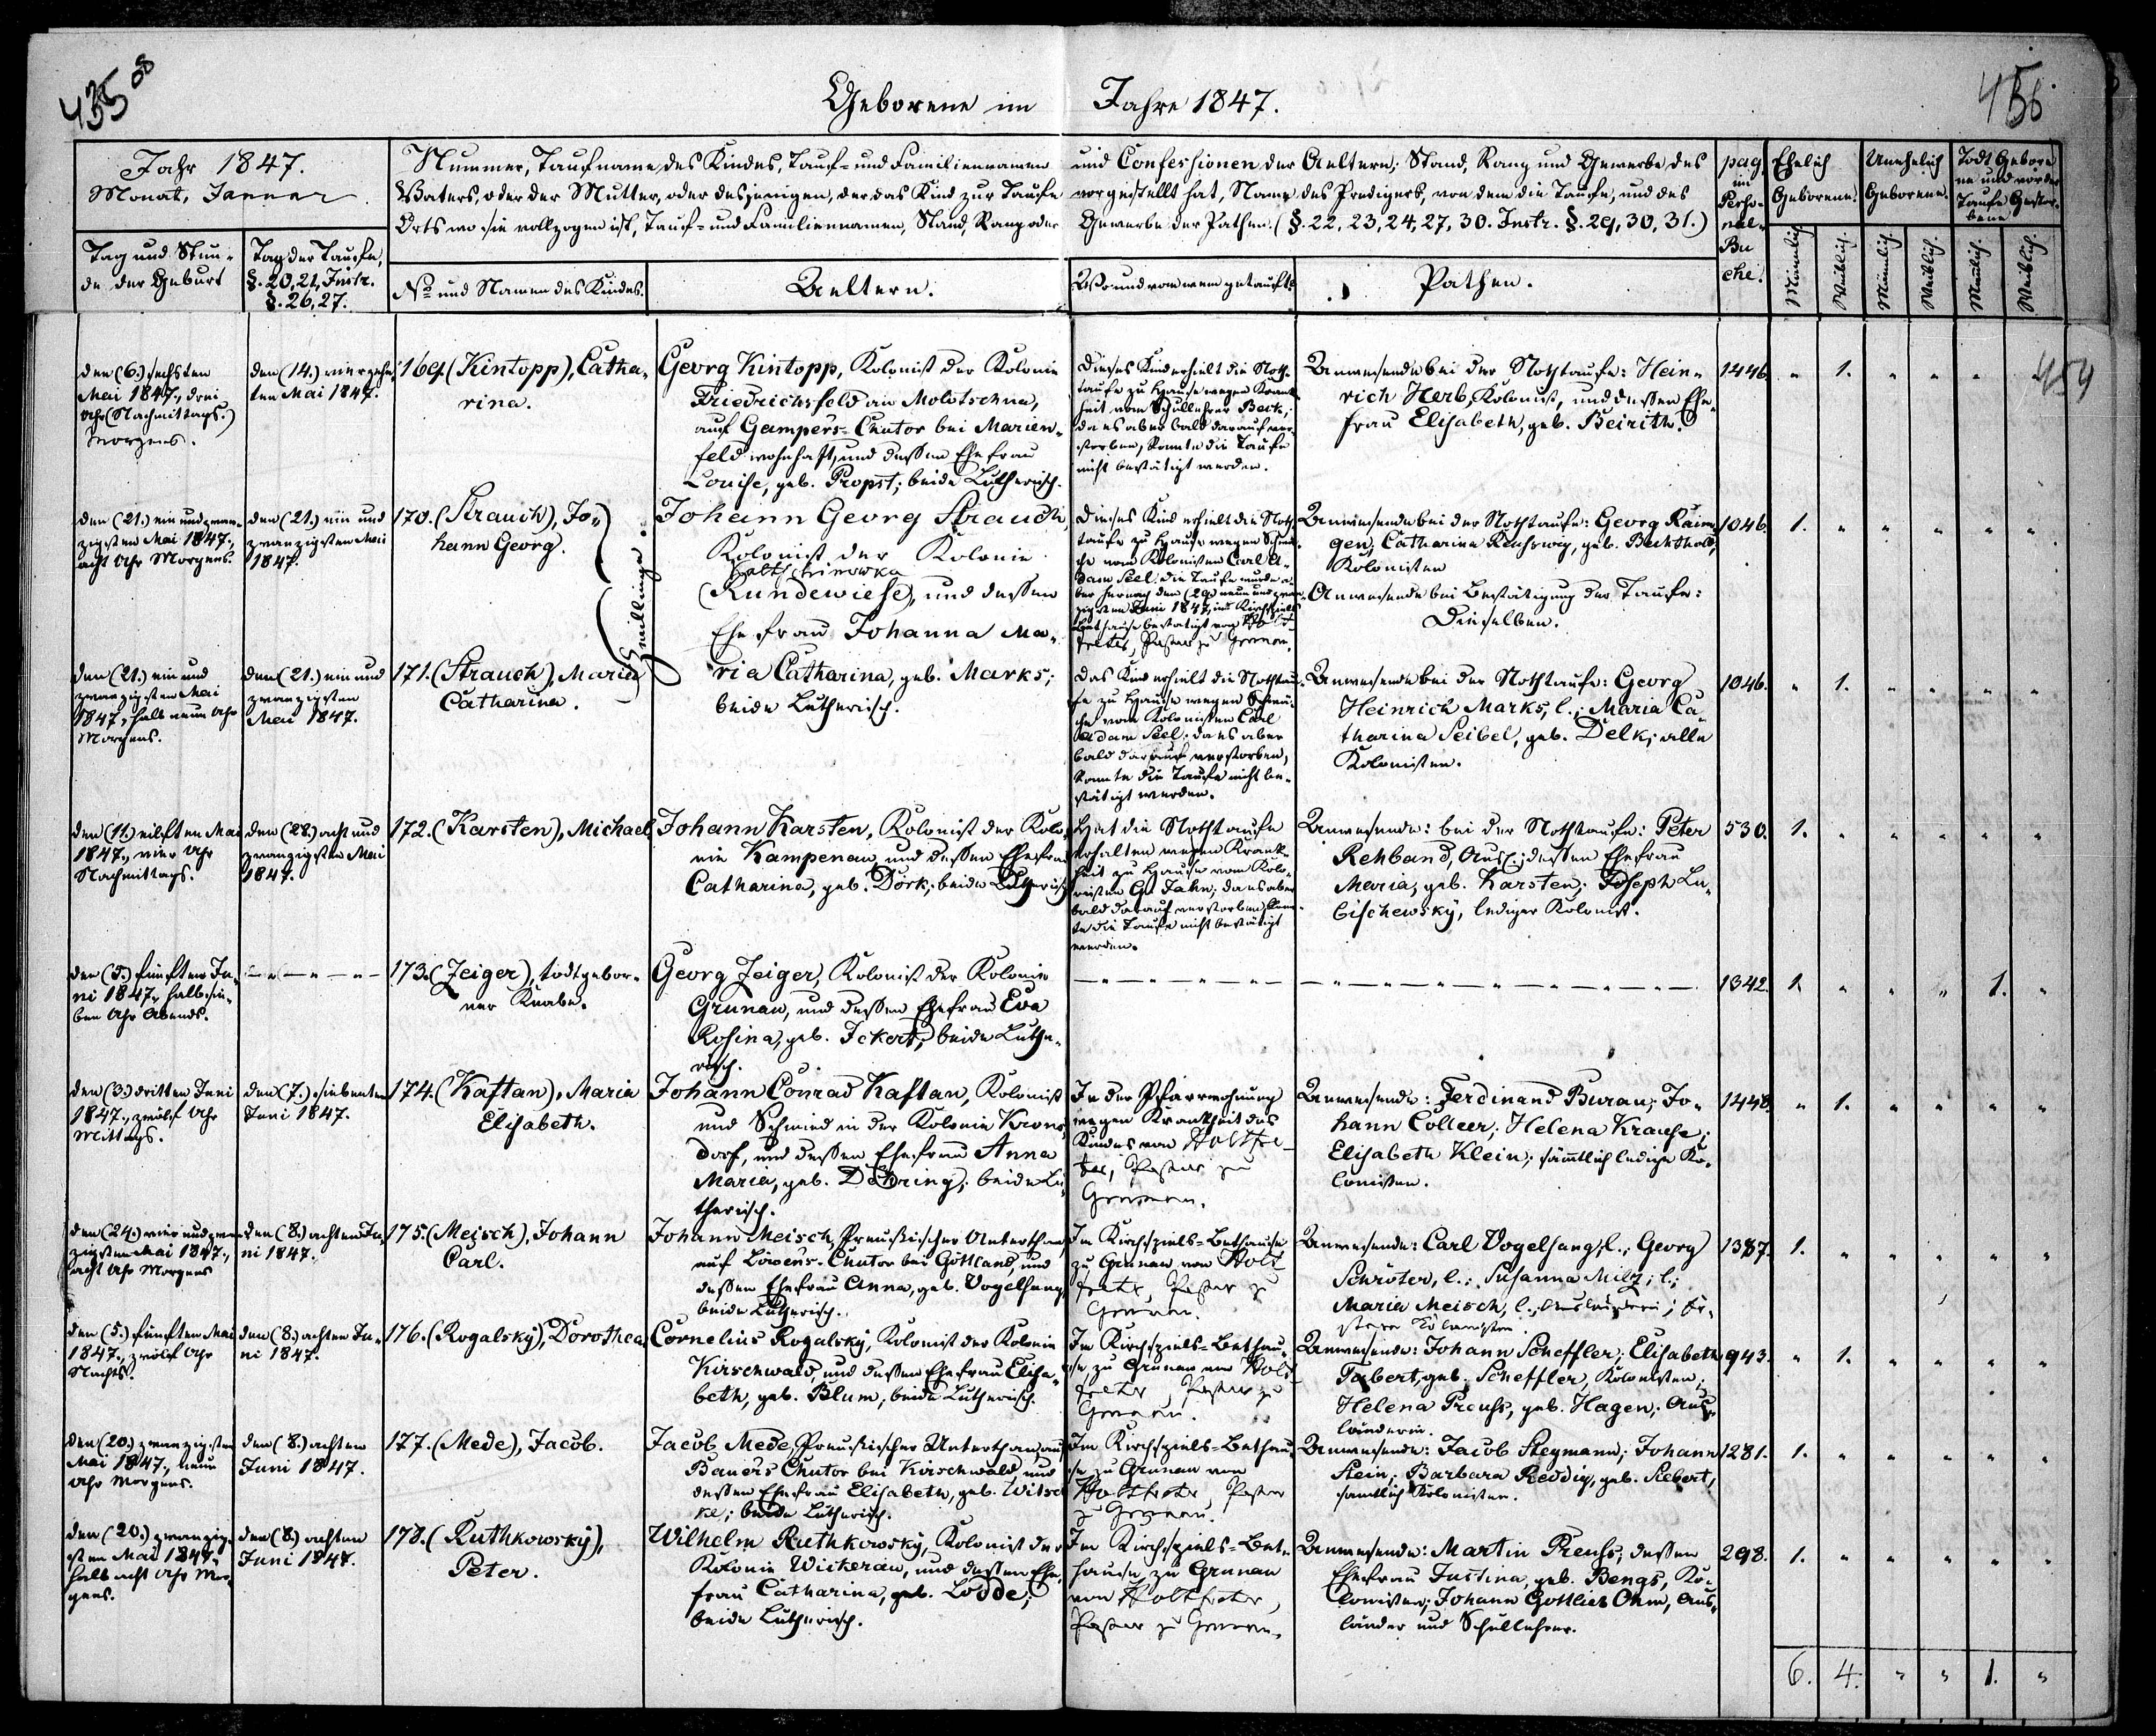 Geborene im Jahre 1847.
Jahr 1847.
Monat, Januar.
Nummer, Taufname des Kindes, Tauf- und Familiennamen und Confessionen der Aeltern; Stand, Rang und Gewerbe des
Vaters, oder der Mutter, oder desjenigen, der das Kind zur Taufe vorgestellt hat, Name des Predigers, von dem die Taufe, und des
Orts wo sie vollzogen ist, Tauf- und Familiennamen, Stand, Rang oder Gewerbe der Pathen. (§. 22, 23, 24, 27, 30. Instr. §. 29, 30, 31.)
pag.
im
Perso-
nal-
Bu
che.
Ehelich
Geborene.
Unehelich
Geborene.
Todt Gebore
ne und vor der
Taufe Gestor-
bene
Tag und Stun-
de der Geburt
Tag der Taufe,
§. 20, 21, Instr.
§. 26, 27.
No und Namen des Kindes.
Aeltern.
Wo und von wem getauft.
Pathen.
Männlich
Weiblich.
Männlich.
Weiblich.
Männlich.
Weiblich.
459
den (6.) sechsten
Mai 1847., drei
Uhr (Nachmittags.)
Morgens.
den (14.) vierzehn-
ten Mai 1847.
169. (Kintopp), Catha-
rina.
Georg Kintopp, Kolonist der Kolonie
Friedrichsfeld an Molotschna,
auf Gampers-Chutor bei Marien-
feld wohnhaft, und dessen Ehefrau
Louise, geb. Propst; beide Lutherisch.
Dieses Kind erhielt die Noth-
taufe zu Hause wegen Krank-
heit vom Schullehrer Beck;
da es aber bald darauf ver-
storben, konnte die Taufe
nicht bestätigt werden.
Anwesende bei der Nothtaufe: Hein-
rich Herb, Kolonist, und dessen Ehe-
frau Elisabeth, geb. Beirith.
1446. " 1. " " "
den (21.) ein und zwan-
zigsten Mai 1847.,
acht Uhr Morgens.
den (21.) ein und
zwanzigsten Mai
1847.
170. (Strauch), Jo-
hann Georg.
Zwillinge.
Johann Georg Strauch,
Kolonist der Kolonie
Kaltschinowka
(Rundewiese), und dessen
Ehefrau Johanna Ma-
Dieses Kind erhielt die Noth-
taufe zu Hause wegen Schwä-
che vom Kolonisten Carl A-
dam Seel. die Taufe wurde a-
ber hernach den (29.) neun und zwan-
zigsten Juni 1847, im Kirchspiels
Bethause bestätigt von Holt-
freter, Pastor zu Grunau.
Anwesende bei der Nothtaufe: Georg Raim-
gen, Catharina Reuhswig, geb. Bechthold,
Kolonisten
Anwesende bei Bestätigung der Taufe:
Dieselben.
1046. 1. " " " " "
den (21.) ein und
zwanzigsten Mai
1847., halb neun Uhr
Morgens.
den (21.) ein und
zwanzigsten
Mai 1847.
171. (Strauch), Maria
Catharina.
ria Catharina, geb. Marks;
beide Lutherisch.
Das Kind erhielt die Nothtau-
fe zu Hause wegen Schwä-
che vom Kolonisten Carl
Adam Seel; da es aber
bald darauf verstorben,
konnte die Taufe nicht be-
stätigt werden.
Anwesende bei der Nothtaufe: Georg
Heinrich Marks, l.; Maria Ca-
tharina Seibel, geb. Delk; alle
Kolonisten.
1046. " 1. " " " "
den (11.) eilften Mai
1847., vier Uhr
Nachmittags.
den (28.) acht und
zwanzigsten Mai
1847.
172. (Karsten), Michael
Johann Karsten, Kolonist der Kolo-
nie Kampenau, und dessen Ehefrau
Catharina, geb. Dörk; beide Lutherisch
Hat die Nothtaufe
erhalten wegen Krank-
heit zu Hause vom Kolo-
nisten G. Jahn; da es aber
bald darauf verstorben, konn-
te die Taufe nicht bestätigt
werden.
Anwesende: bei der Nothtaufe: Peter
Rehband, Ausl.; dessen Ehefrau
Maria, geb. Karsten; Joseph Lu-
bischewsky, lediger Kolonist.
530. 1. " " " " "
den (5.) fünften Ju-
ni 1847., halb sie-
ben Uhr Abends.
173. (Zeiger), todtgebor-
ner Knabe.
Georg Zeiger, Kolonist der Kolonie
Grunau, und dessen Ehefrau Eva
Rosina, geb. Ickert; beide Luthe-
risch.
1342. 1. " " " 1. "
den (3.) dritten Juni
1847., zwölf Uhr
Mittags.
den (7.) siebenten
Juni 1847.
174. (Kaftan), Maria
Elisabeth.
Johann Conrad Kaftan, Kolonist
und Schmied in der Kolonie Krons-
dorf, und dessen Ehefrau Anna
Maria, geb. Döhring; beide Lu-
therisch.
In der Pfarrwohnung
wegen Krankheit des
Kindes von Holtfre-
ter, Pastor zu
Grunau.
Anwesende: Ferdinand Burau; Jo-
hann Colleer; Helena Krause;
Elisabeth Klein; sämmtlich ledige Ko-
lonisten.
1448. " 1. " " " "
den (24.) vier und zwan-
zigsten Mai 1847.,
acht Uhr Morgens
den (8.) achten Ju-
ni 1847.
175. (Meisch), Johann
Carl.
Johann Meisch, Preußischer Unterthan,
auf Löwens-Chutor bei Göttland, und
dessen Ehefrau Anna, geb. Vogelsang,
beide Lutherisch.
Im Kirchspiels-Bethause
zu Grunau von Holt
freter, Pastor zu
Grunau.
Anwesende: Carl Vogelsang, l.; Georg
Schröter, l.; Susanna Milz, l.;
Maria Meisch, l., Ausländerin; Er-
stere Kolonisten.
1387. 1. " " " " "
den (5.) fünften Mai
1847., zwölf Uhr
Nachts.
den (8.) achten Ju-
ni 1847.
176. (Rogalsky), Dorothea
Cornelius Rogalsky, Kolonist der Kolonie
Kirschwald, und dessen Ehefrau Elisa-
beth, geb. Blum, beide Lutherisch.
Im Kirchspiels-Bethau-
se zu Grunau von Holt-
freter, Pastor zu
Grunau.
Anwesende: Johann Scheffler; Elisabeth
Tabert, geb. Scheffler, Kolonisten;
Helena Preuss, geb. Hagen; Aus-
länderin.
943. " 1. " " " "
den (20.) zwanzigsten
Mai 1847., neun
Uhr Morgens.
den (8.) achten
Juni 1847.
177. (Mede), Jacob.
Jacob Mede, Preußischer Unterthan, auf
Bauers Chutor bei Kirschwald, und
dessen Ehefrau Elisabeth, geb. Witsch
ke; beide Lutherisch.
Im Kirchspiels-Bethau-
se zu Grunau von
Holtfreter, Pastor
zu Grunau.
Anwesende: Jacob Stegmann; Johann
Stein; Barbara Reddig, geb. Siebert,
sämtlich Kolonisten.
1281. 1. " " " " "
den (20.) zwanzig-
sten Mai 1847.,
halb acht Uhr Mor-
gens.
den (8.) achten
Juni 1847.
178. (Ruthkowsky),
Peter.
Wilhelm Ruthkowsky, Kolonist der
Kolonie Wickerau, und dessen Ehe-
frau Catharina, geb. Lodde;
beide Lutherisch.
Im Kirchspiels-Bet-
hause zu Grunau
von Holtfreter,
Pastor zu Grunau.
Anwesende: Martin Preuss; dessen
Ehefrau Justina, geb. Bengs, Ko-
lonisten; Johann Gottlieb Ohm, Aus-
länder und Schullehrer.
298. 1. " " " " "
6. 4. " " 1. "